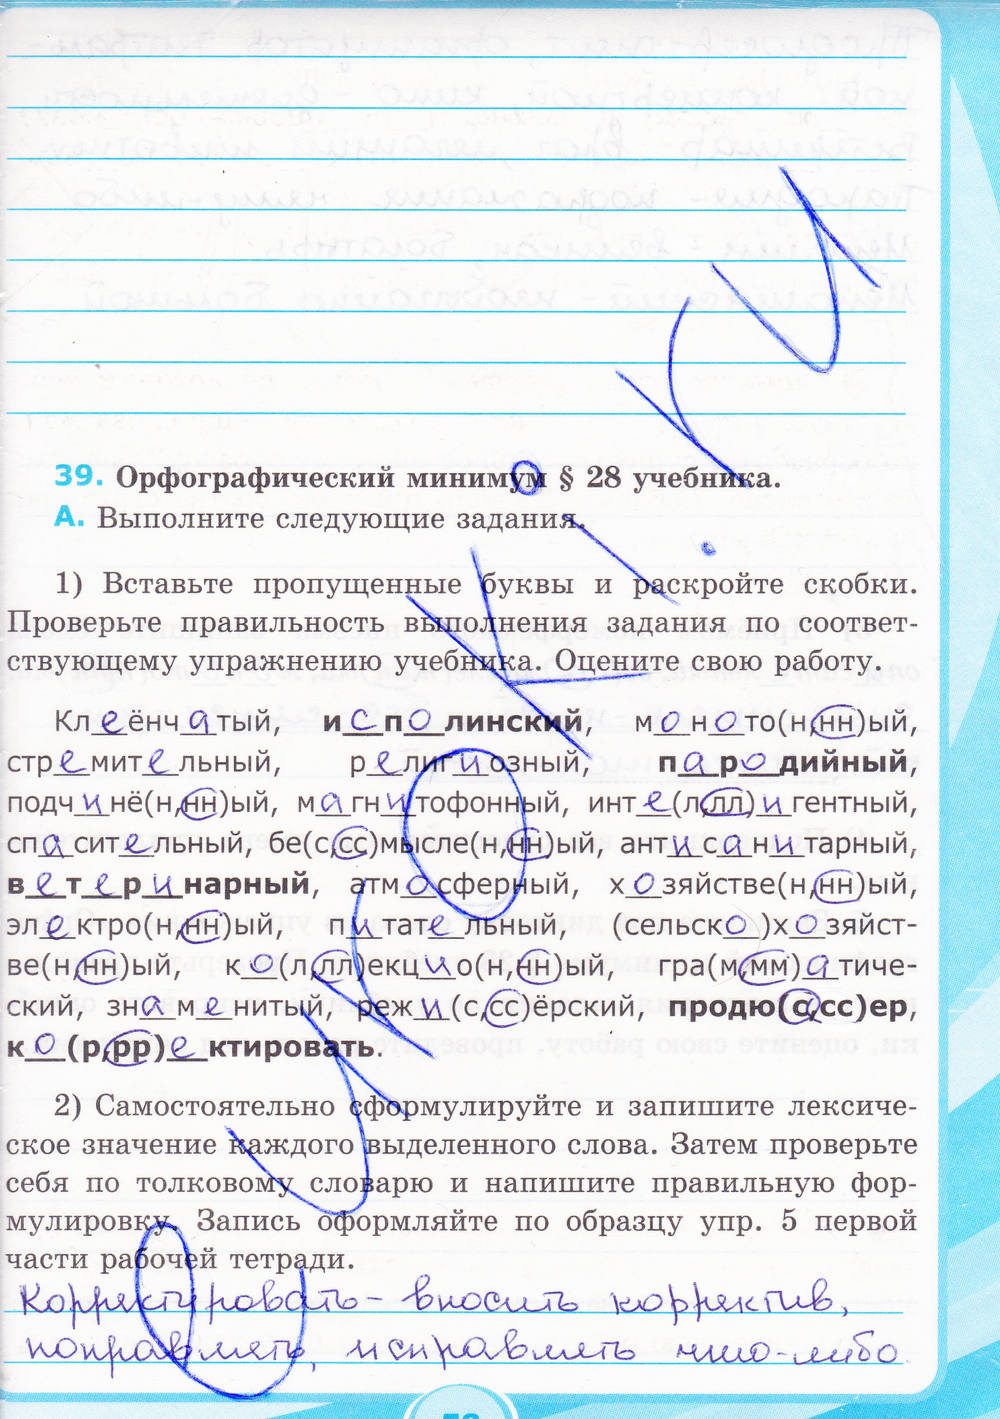 39. Орфографический минимум § 28 учебника.
А. Выполните следующие задания.
1) Вставьте пропущенные буквы и раскройте скобки.
Проверьте правильность выполнения задания по соответ-
ствующему упражнению учебника. Оцените свою работу.
Клеёнчатый, исполинский, моното(н,нн)ый,
стремительный, религиозный, пародийный,
подчинё(н,нн)ый, магнитофонный, инте(л,лл)игентный,
спасительный, бе(с,сс)мысле(н,нн)ый, антисанитарный,
ветеринарный, атмосферный, хозяйстве(н,нн)ый,
электро(н,нн)ый, питательный, (сельско)хозяйст-
ве(н,нн)ый, ко(л,лл)екцио(н,нн)ый, гра(м,мм)атиче-
ский, знаменитый, режи(с,сс)ёрский, продю(с,сс)ер,
ко(р,рр)ектировать.
2) Самостоятельно сформулируйте и запишите лексиче-
ское значение каждого выделенного слова. Затем проверьте
себя по толковому словарю и напишите правильную фор-
мулировку. Запись оформляйте по образцу упр. 5 первой
части рабочей тетради.
Корректировать - вносить корректив,
поправлять, исправлять что-либо
уроки.ru